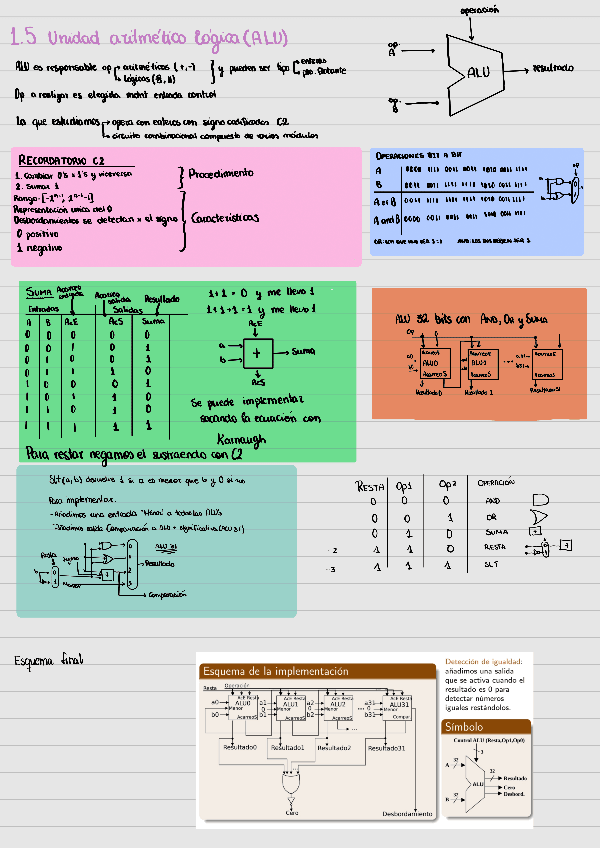 1.5 Unidad aritmético lógica (ALU)
operación
op. A
op. B
ALU
resultado
ALU es responsable op aritméticas (+,-)
lógicas (&, ||)
y pueden ser tipo enteros
pto. flotante
Op a realizar es elegida mdnt entrada control
Lo que estudiamos opera con enteros con signo codificados C2
circuito combinacional compuesto de varios módulos
RECORDATORIO C2
1. Cambiar 0's x 1's y viceversa
2. Sumar 1
Procedimiento
Rango: [-2ⁿ⁻¹, 2ⁿ⁻¹-1]
Representación única del 0
Desbordamientos se detectan x el signo
0 positivo
1 negativo
Características
OPERACIONES BIT A BIT
A
B
A or B
A and B
SUMA
Acarreo entrada
Acarreo salida
Resultado
Entradas
Salidas
A B AcE AcS Suma
0 0 0 0 0
0 0 1 0 1
0 1 0 0 1
0 1 1 1 0
1 0 0 0 1
1 0 1 1 0
1 1 0 1 0
1 1 1 1 1
1+1 = 0 y me llevo 1
1+1+1 = 1 y me llevo 1
AcE
a
b
+
Suma
AcS
Se puede implementar
sacando la ecuación con
Karnaugh
Para restar negamos el sustraendo con C2
ALU 32 bits con AND, OR y SUMA
Op
AcarreoE
ALU0
AcarreoS
AcarreoE
ALU1
AcarreoS
AcarreoE
AcarreoS
a31
b31
Resultado0
Resultado 1
Resultado31
Slt(a, b) devuelve 1 si a es menor que b y 0 si no
Para implementar:
-Añadimos una entrada "Menor" a todas las ALUs
-Añadimos salida Comparación a bit + significativa (ALU31)
Resta
Menor
ALU 31
Resultado
Comparación
RESTA Op1 Op2 OPERACIÓN
0 0 0 AND
0 0 1 OR
0 1 0 SUMA
-2 1 1 0 RESTA
-3 1 1 1 SLT
Esquema final
Esquema de la implementación
Resta
Operación
AcE Resta
ALU0
Menor
AcarreoS
a0
0
b0
AcE Resta
ALU1
Menor
AcarreoS
a1
0
b1
AcE Resta
ALU2
Menor
AcarreoS
a2
0
b2
...
AcE Resta
ALU31
Menor
Compar.
a31
0
b31
...
Resultado0 Resultado1 Resultado2 Resultado31
Cero
Desbordamiento
Detección de igualdad:
añadimos una salida
que se activa cuando el
resultado es 0 para
detectar números
iguales restándolos.
Símbolo
Control ALU (Resta,Op1,Op0)
3
A
32
ALU
32
Resultado
Cero
Desbord.
B
32